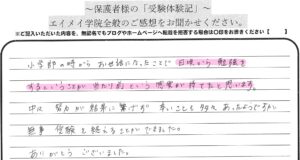 ～保護者様の「受験体験記」～
エイメイ学院全般のご感想をお聞かせください。
※ご記入いただいた内容を、無記名でもブログやホームページへ転載を拒否する場合は○印をお書きください【　】
小学部の時から お世話になったことで 日頃から 勉強を
するということが 当たり前という 感覚が 持てたと思います。
中には 努力が 結果に 繋げず 辛いことも 多々 あったようですが
無事 受験を 終えることができました。
ありがとう ございました。